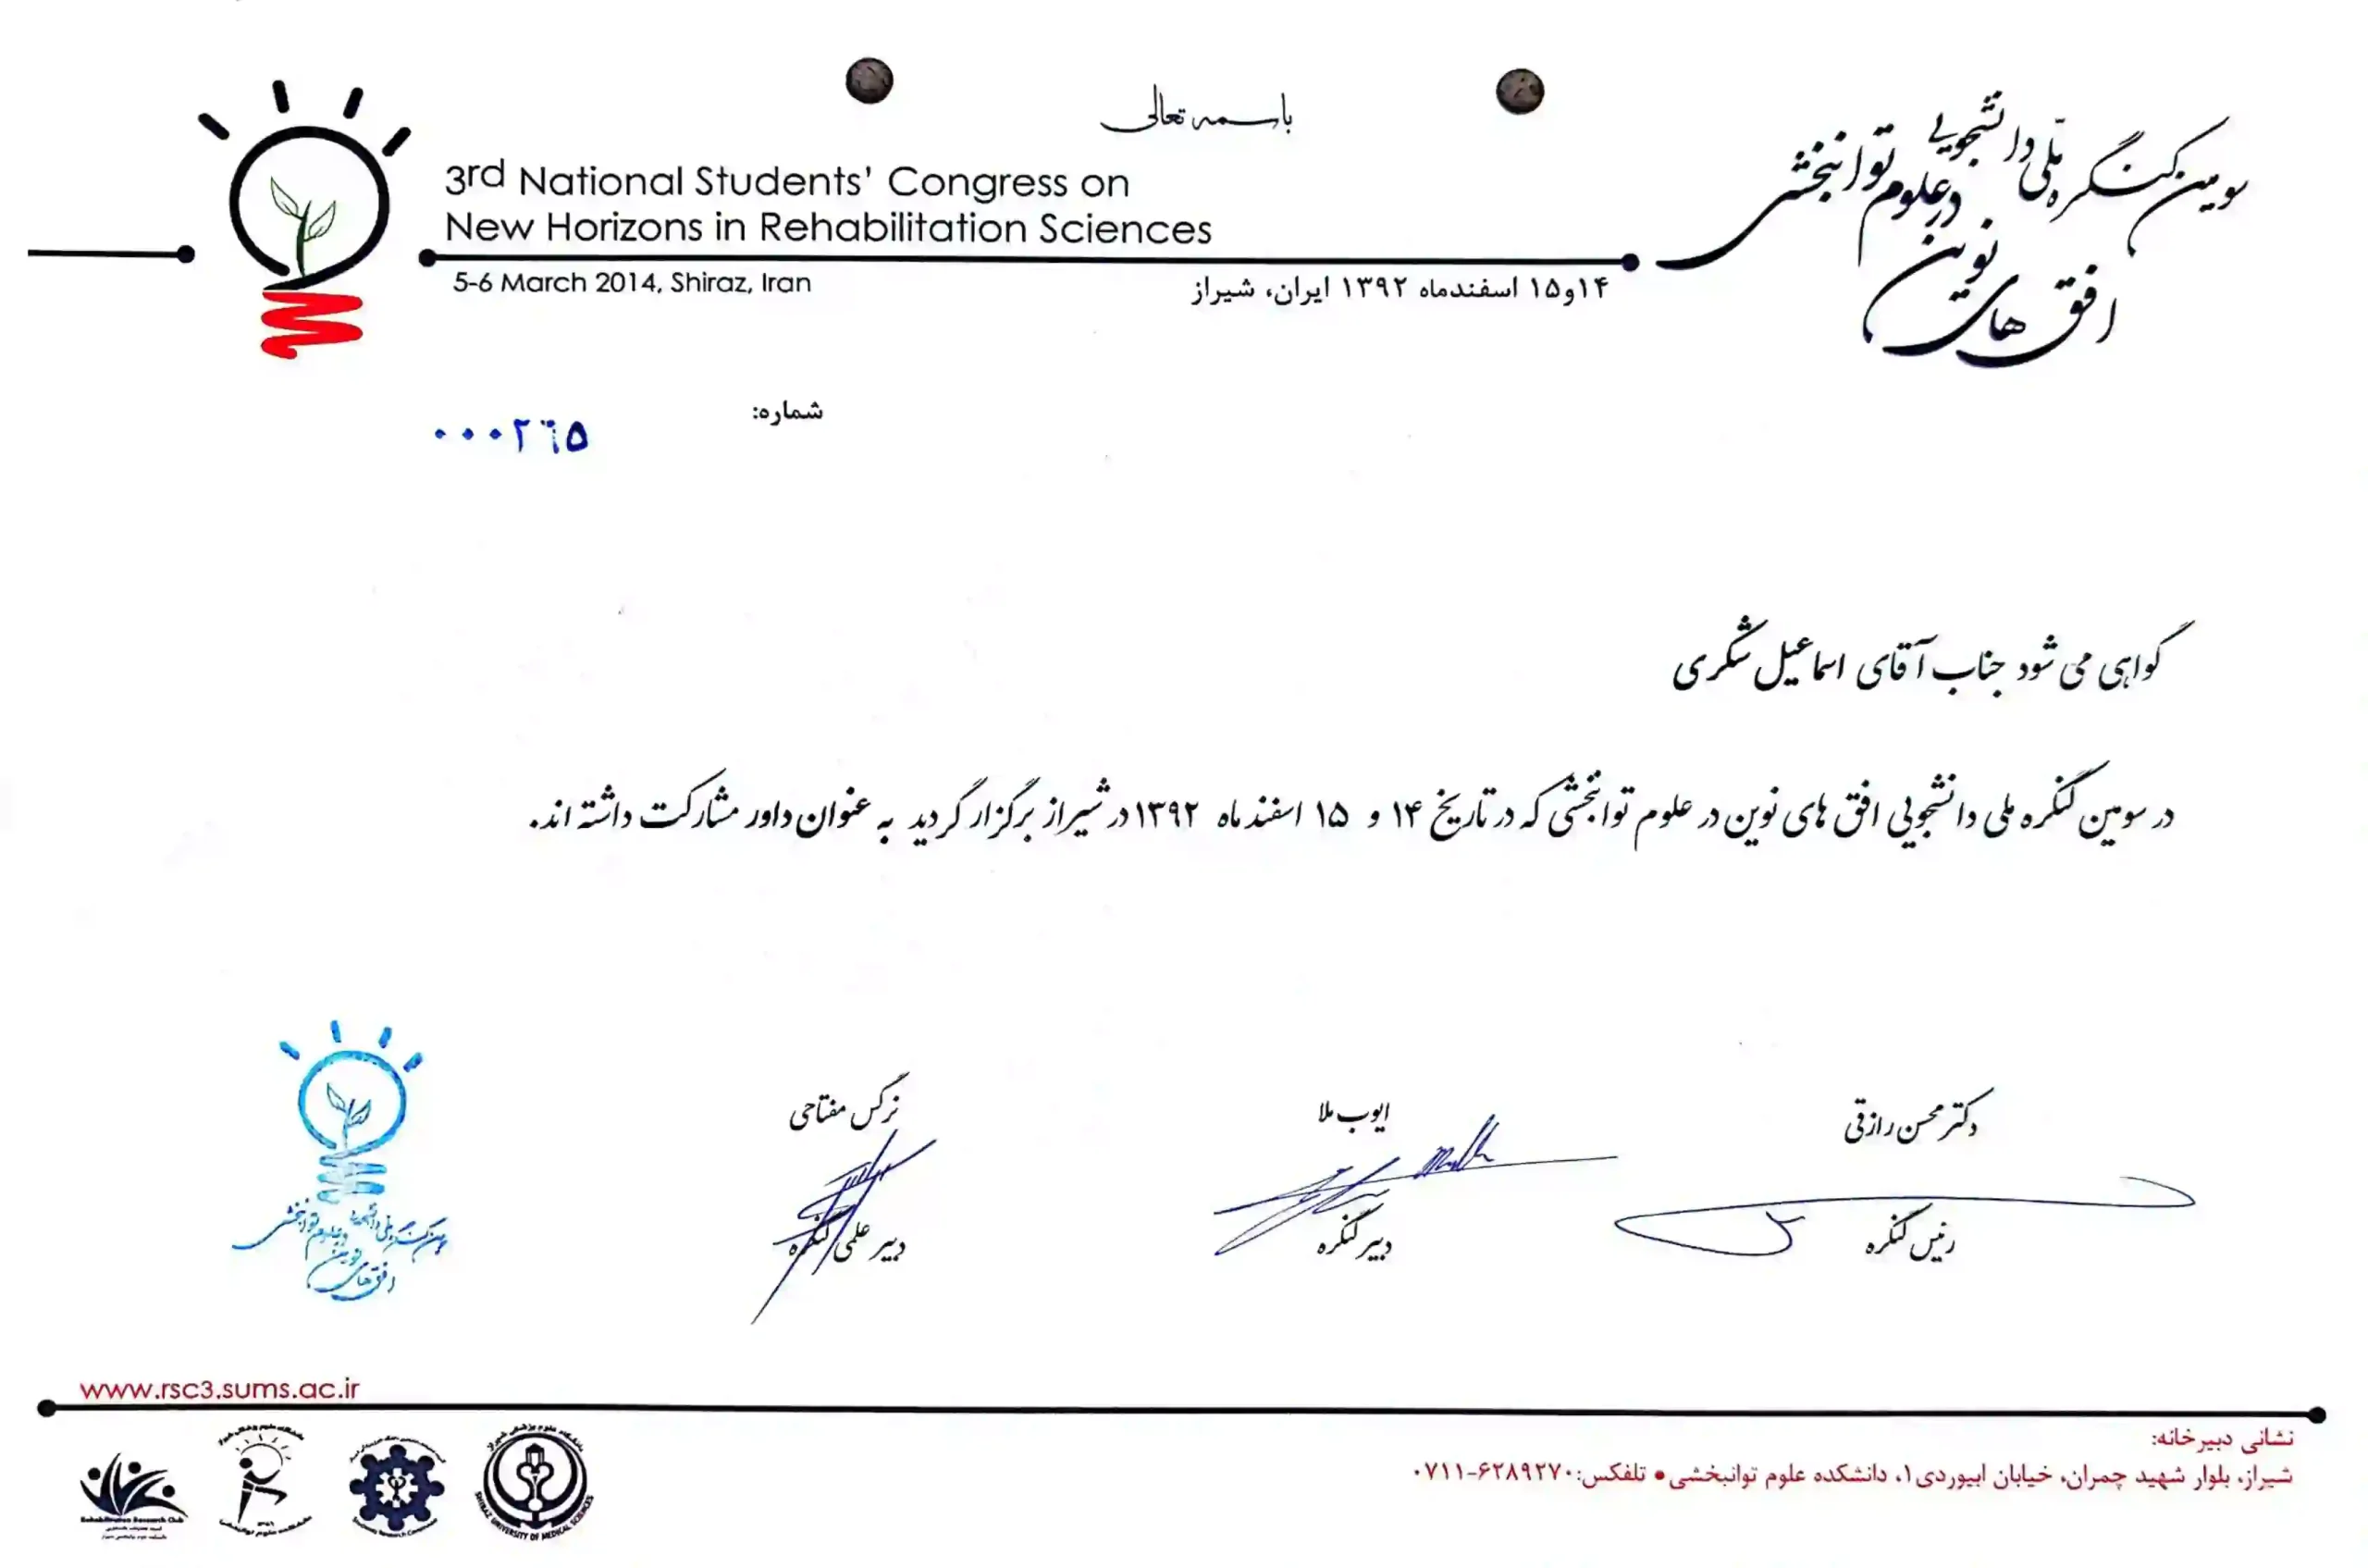 باسمه تعالی
3rd National Students’ Congress on
New Horizons in Rehabilitation Sciences
5-6 March 2014, Shiraz, Iran
سومین کنگره ملّی دانشجویی
افق های نوین در علوم توانبخشی
۱۴و۱۵ اسفندماه ۱۳۹۲ ایران، شیراز
شماره:
۰۰۰۲٦۵
گواهی می شود جناب آقای اسماعیل شکری
در سومین کنگره ملی دانشجویی افق های نوین در علوم توانبخشی که در تاریخ ۱۴ و ۱۵ اسفند ماه ۱۳۹۲ در شیراز برگزار گردید به عنوان داور مشارکت داشته اند.
دکتر محسن رازقی
رئیس کنگره
ایوب ملا
دبیر کنگره
نرگس مفتاحی
دبیر علمی کنگره
سومین کنگره ملی دانشجویی
افق های نوین در علوم توانبخشی
www.rsc3.sums.ac.ir
نشانی دبیرخانه:
شیراز، بلوار شهید چمران، خیابان ابیوردی۱، دانشکده علوم توانبخشی • تلفکس: ۰۷۱۱-۶۲۸۹۲۷۰
Rehabilitation Research Club
دانشگاه علوم پزشکی شیراز
SHIRAZ UNIVERSITY OF MEDICAL SCIENCES